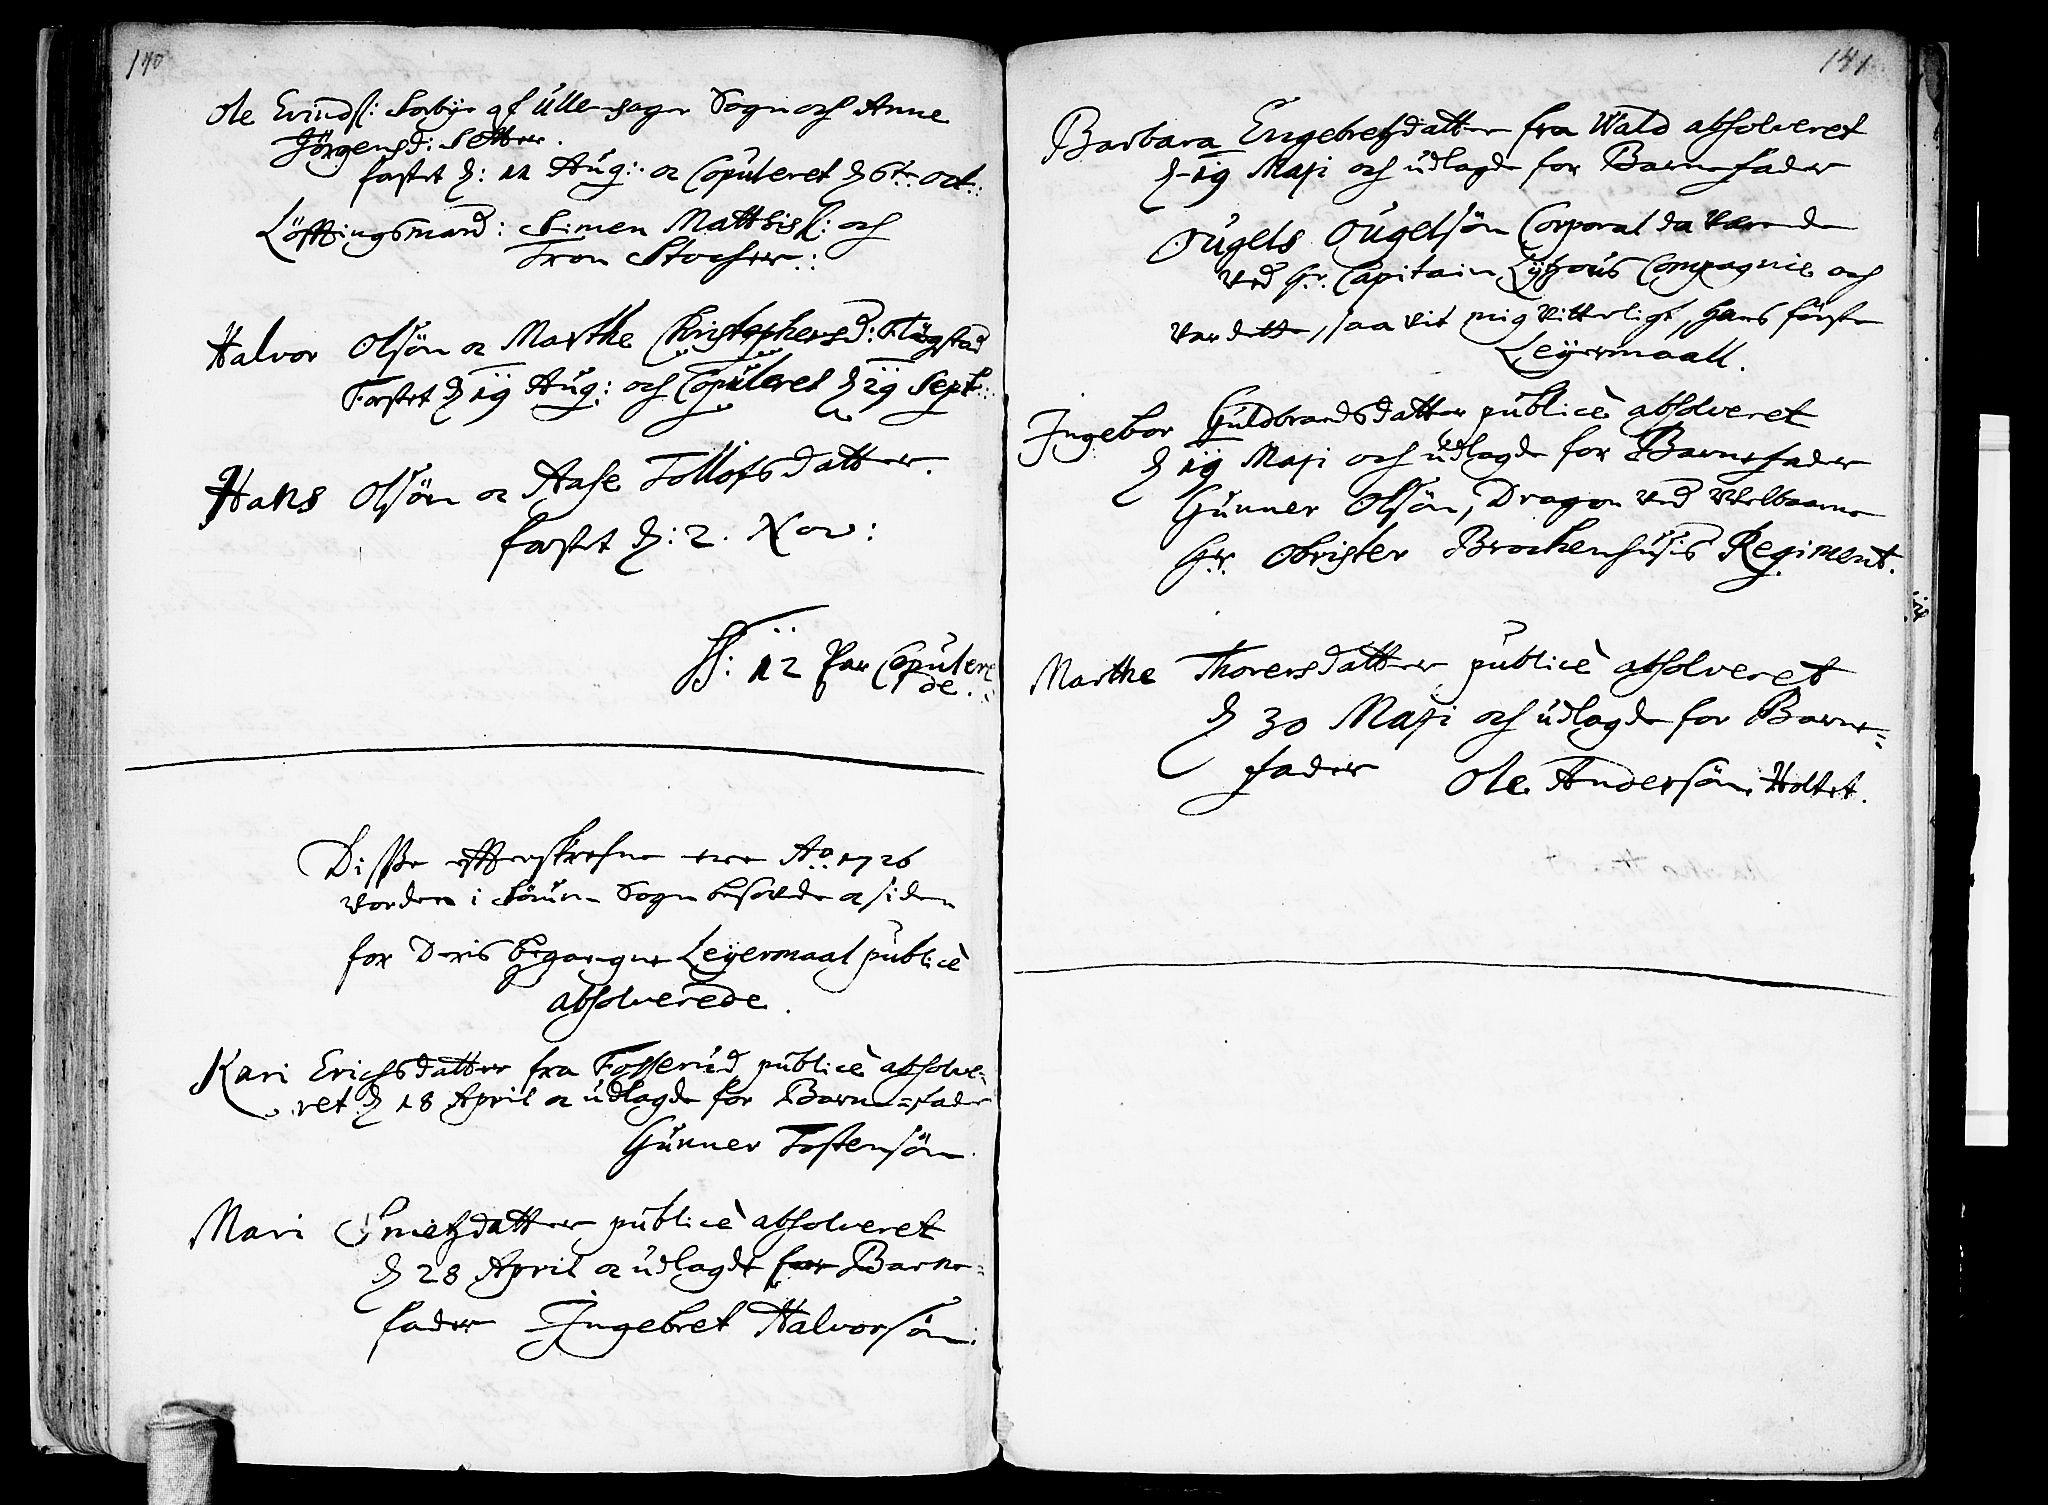 140
Ole Evinds: Sorbye af Ullensager Sogn och Anne
Jörgensd: Setter.
fæstet d: 11 Aug: oc Copuleret d 6te Oct:
Löftingsmænd: Simen Matthiss: och
Tron Stocher:
Halvor Olsön oc Marthe Christophersd: Flügstad
Fæstet d 19 Aug: och Copuleret d 29 Sept:
Hans Olsön oc Aase Tollofsdatter.
fæstet d: 2. Nov:
S: 12 Par Copulere
de.
Disse effterskrefne ere Ao 1726
vorden i Sörum Sogn besofvede oc siden
for Deris begangne Leyermaal publicè
absolverede.
Kari Erichsdatter fra Fosserud publicè absolve-
ret d 18 April oc udlagde for Barne=fader
Gunner Tostensön.
Mari Smetzdatter publicè absolveret
d 28 April oc udlagde for Barne-
fader Ingebret Halvorsön.
141
Barbara Engebretzdatter fra Wald absolveret
d 19 Maji och udlagde for Barnefader
Ougels Ougelsön Corporal da værende
ved Hr. Capitain Lÿtzous Compagnie och
var dette, saa vit mig vitterligt, hans förste
Leyermaall.
Ingebor Guldbrandsdatter publicè absolveret
d 19 Maji och udlagde for Barnefader
Gunner Olsön, Dragon ved Velbaarne
Hr. Obrister Brockenhusis Regiment.
Marthe Thoresdatter publicè absolveret
d 30 Maji och udlagde for Barne=
fader Ole Andersön Holtet.